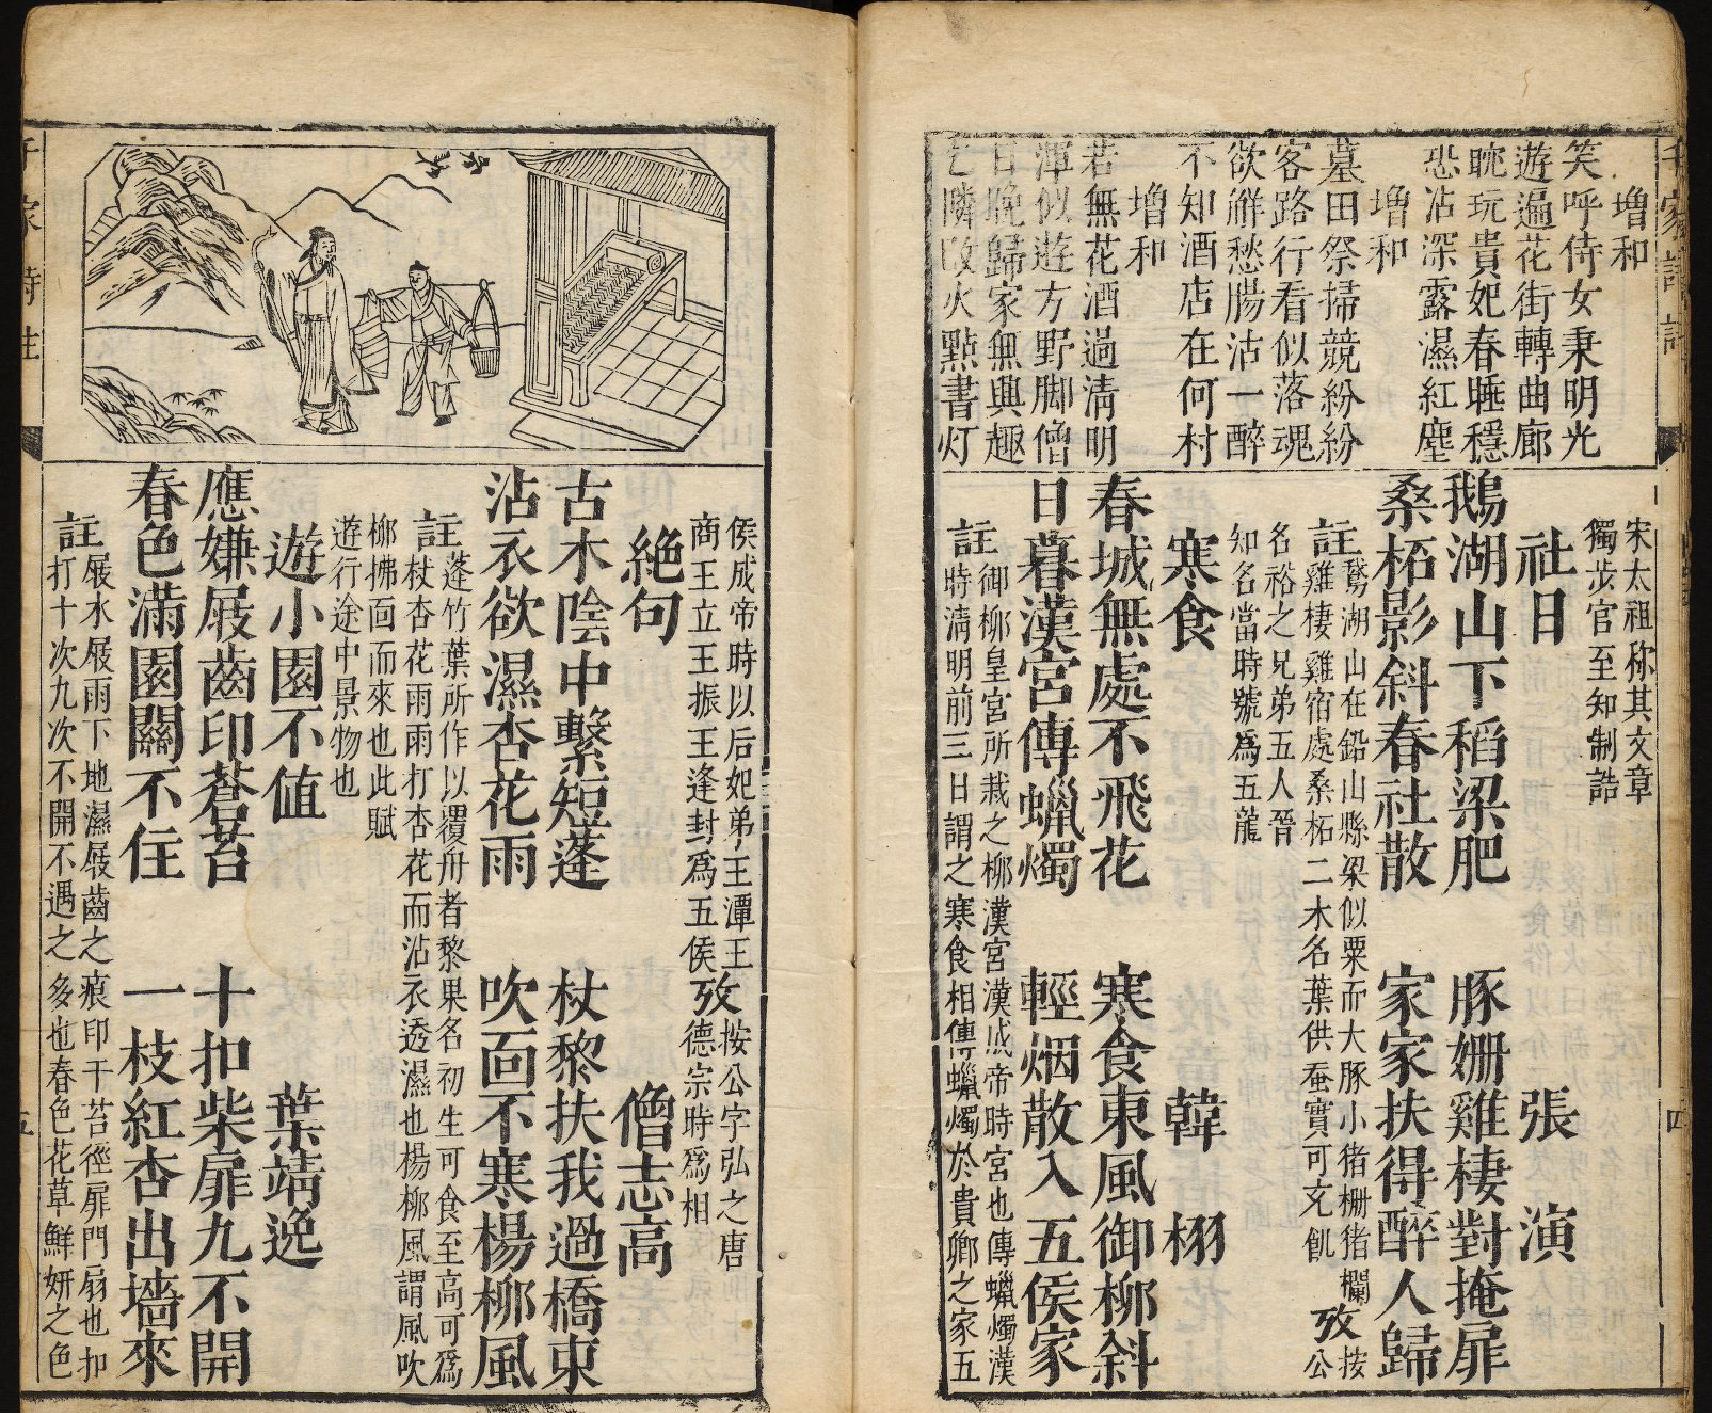 千家詩註
增和
笑呼侍女秉明光
遊遍花街轉曲廊
眺玩貴妃春睡穩
恐沾深露濕紅塵
增和
墓田祭掃競紛紛
客路行看似落魂
欲觧愁腸沽一醉
不知酒店在何村
增和
若無花酒過清明
渾似遊方野脚僧
日晚歸家無興趣
乞隣改火點書灯
宋太祖称其文章
獨步官至知制誥
社日　張演
鵝湖山下稻梁肥　豚姍雞棲對掩扉
桑柘影斜春社散　家家扶得醉人歸
註鵞湖山在鉛山縣梁似粟而大豚小猪栅猪欄攷按
雞棲雞宿處桑柘二木名葉供蚕實可充飢　公
名裕之兄弟五人晉
知名當時號為五龍
寒食　韓栩
春城無處不飛花　寒食東風御柳斜
日暮漢宮傳蠟燭　輕烟散入五侯家
註御柳皇宮所栽之柳漢宮漢成帝時宮也傳蠟燭漢
時清明前三日謂之寒食相傳蠟燭於貴卿之家五
四
侯成帝時以后妃弟王潭王攷按公字弘之唐
商王立王振王逢封為五侯　德宗時為相
絶句　僧志高
古木陰中繫短蓬　杖黎扶我過橋東
沾衣欲濕杏花雨　吹面不寒楊柳風
註蓬竹葉所作以覆舟者黎果名初生可食至高可為
杖杏花雨雨打杏花而沾衣透濕也楊柳風謂風吹
柳拂面而來也此賦
遊行途中景物也
遊小園不值　葉靖逸
應嫌屐齒印蒼苔　十扣柴扉九不開
春色滿園關不住　一枝紅杏出墻來
註屐木屐雨下地濕屐齒之痕印干苔徑扉門扇也扣
打十次九次不開不遇之多也春色花草鮮妍之色
千家詩註
五